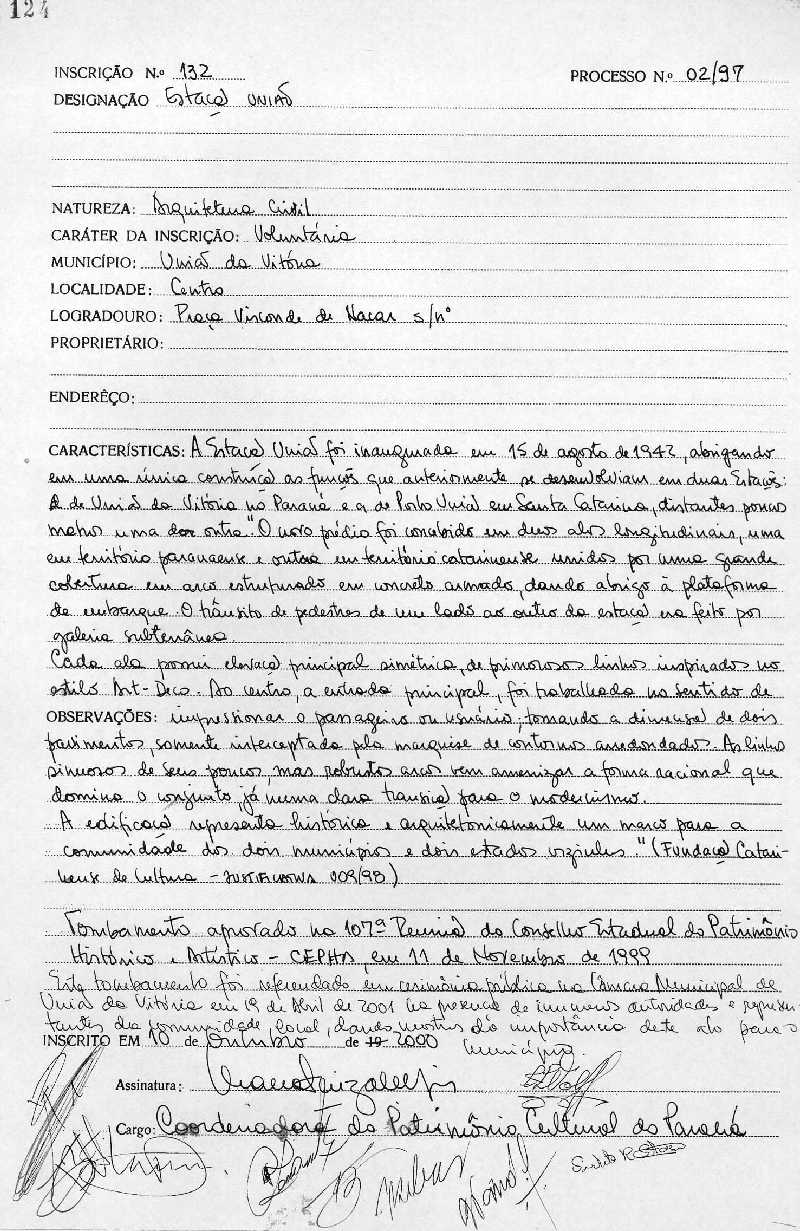 124
INSCRIÇÃO N.º 132 PROCESSO N.º 02/97
DESIGNAÇÃO Estação UNIÃO
NATUREZA: Arquitetura Civil
CARÁTER DA INSCRIÇÃO: Voluntária
MUNICÍPIO: União da Vitória
LOCALIDADE: Centro
LOGRADOURO: Praça Visconde de Nacar s/nº
PROPRIETÁRIO:
ENDERÊÇO:
CARACTERÍSTICAS: A Estação União foi inaugurada em 15 de agosto de 1942, abrigando
em uma única construção as funções que anteriormente se desenvolviam em duas Estações:
A de União da Vitória no Paraná e a de Porto União em Santa Catarina, distantes poucos
metros uma da outra. "O novo prédio foi concebido em duas alas longitudinais, uma
em território paranaense e outra em território catarinense unidos por uma grande
cobertura em arco estruturado em concreto armado, dando abrigo à plataforma
de embarque. O trânsito de pedestres de um lado ao outro da estação era feito por
galeria subterrânea
Cada ala possui elevação principal simétrica, de primorosos linhos inspirados no
estilo Art-Deco. Ao centro, a entrada principal, foi trabalhada no sentido de
OBSERVAÇÕES: impressionar o passageiro ou usuário, tomando a dimensão de dois
pavimentos, somente interceptada pela marquise de contornos arredondados. As linhas
sinuosas de seus poucos, mas robustos arcos vem amenizar a forma racional que
domina o conjunto, já numa clara transição para o modernismo.
A edificação representa histórica e arquitetonicamente um marco para a
comunidade dos dois municípios e dois estados vizinhos." (Fundação Catari-
nense de Cultura - JUSTIFICATIVA 009/98)
Tombamento aprovado na 107ª Reunião do Conselho Estadual do Patrimônio
Histórico e Artístico - CEPHA, em 11 de Novembro de 1999
Este tombamento foi referendado em cerimônia pública na Câmara Municipal de
União da Vitória em 19 de Abril de 2001 na presença de inúmeras autoridades e represen-
tantes da comunidade local, dando mostras da importância deste ato para o
município.
INSCRITO EM 10 de Outubro de 19 2000
Assinatura:
Cargo: Coordenadora do Patrimônio Cultural do Paraná